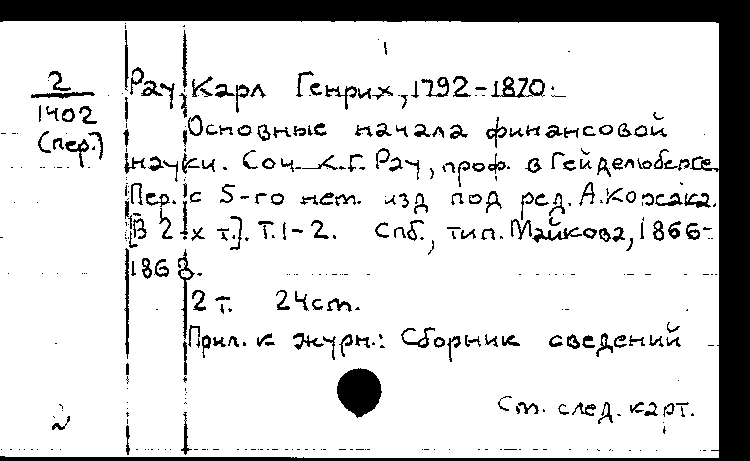 2
1402
(пер.)
Рау, Карл Генрих, 1792-1870.
Основные начала финансовой
науки. Соч. К.Г. Рау, проф. в Гейдельберге.
Пер. с 5-го нем. изд под ред. А.Корсака.
[В 2-х т.]. Т.1-2. Спб., тип. Майкова, 1866-
1868.
2 т. 24 cm.
Прил. к журн.: Сборник сведений
См. след. карт.
2